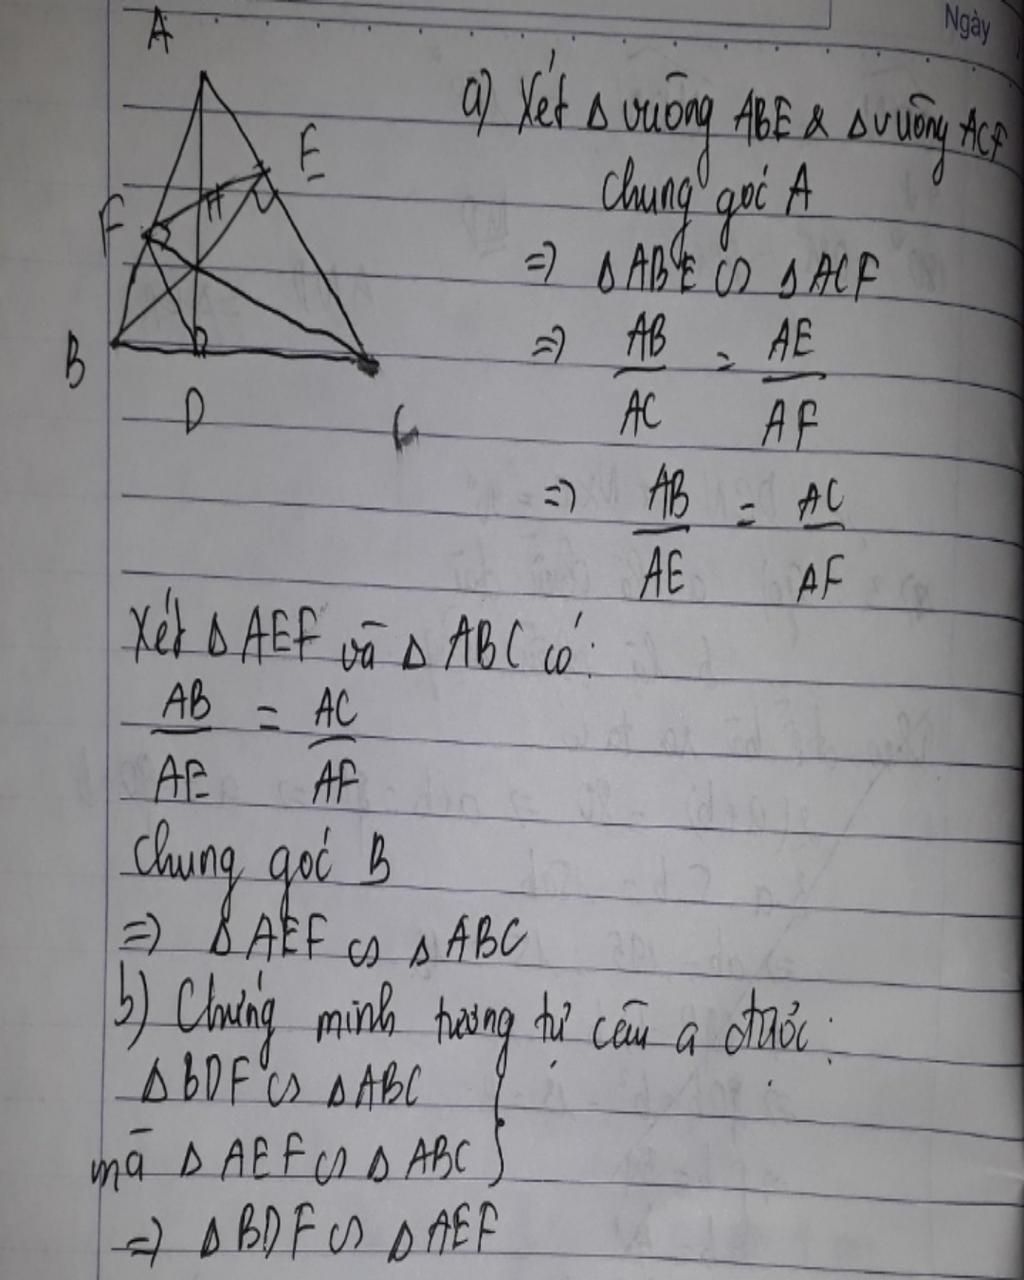 Ngày
A
E
F
H
B
D
C
a) Xét Δ vuông ABE & Δ vuông ACF
Chung góc A
=> Δ ABE ∽ Δ ACF
=> AB/AC = AE/AF
=> AB/AE = AC/AF
Xét Δ AEF và Δ ABC có:
AB/AE = AC/AF
Chung góc B
=> Δ AEF ∽ Δ ABC
b) Chứng minh tương tự câu a được:
Δ BDF ∽ Δ ABC
mà Δ AEF ∽ Δ ABC
=> Δ BDF ∽ Δ AEF